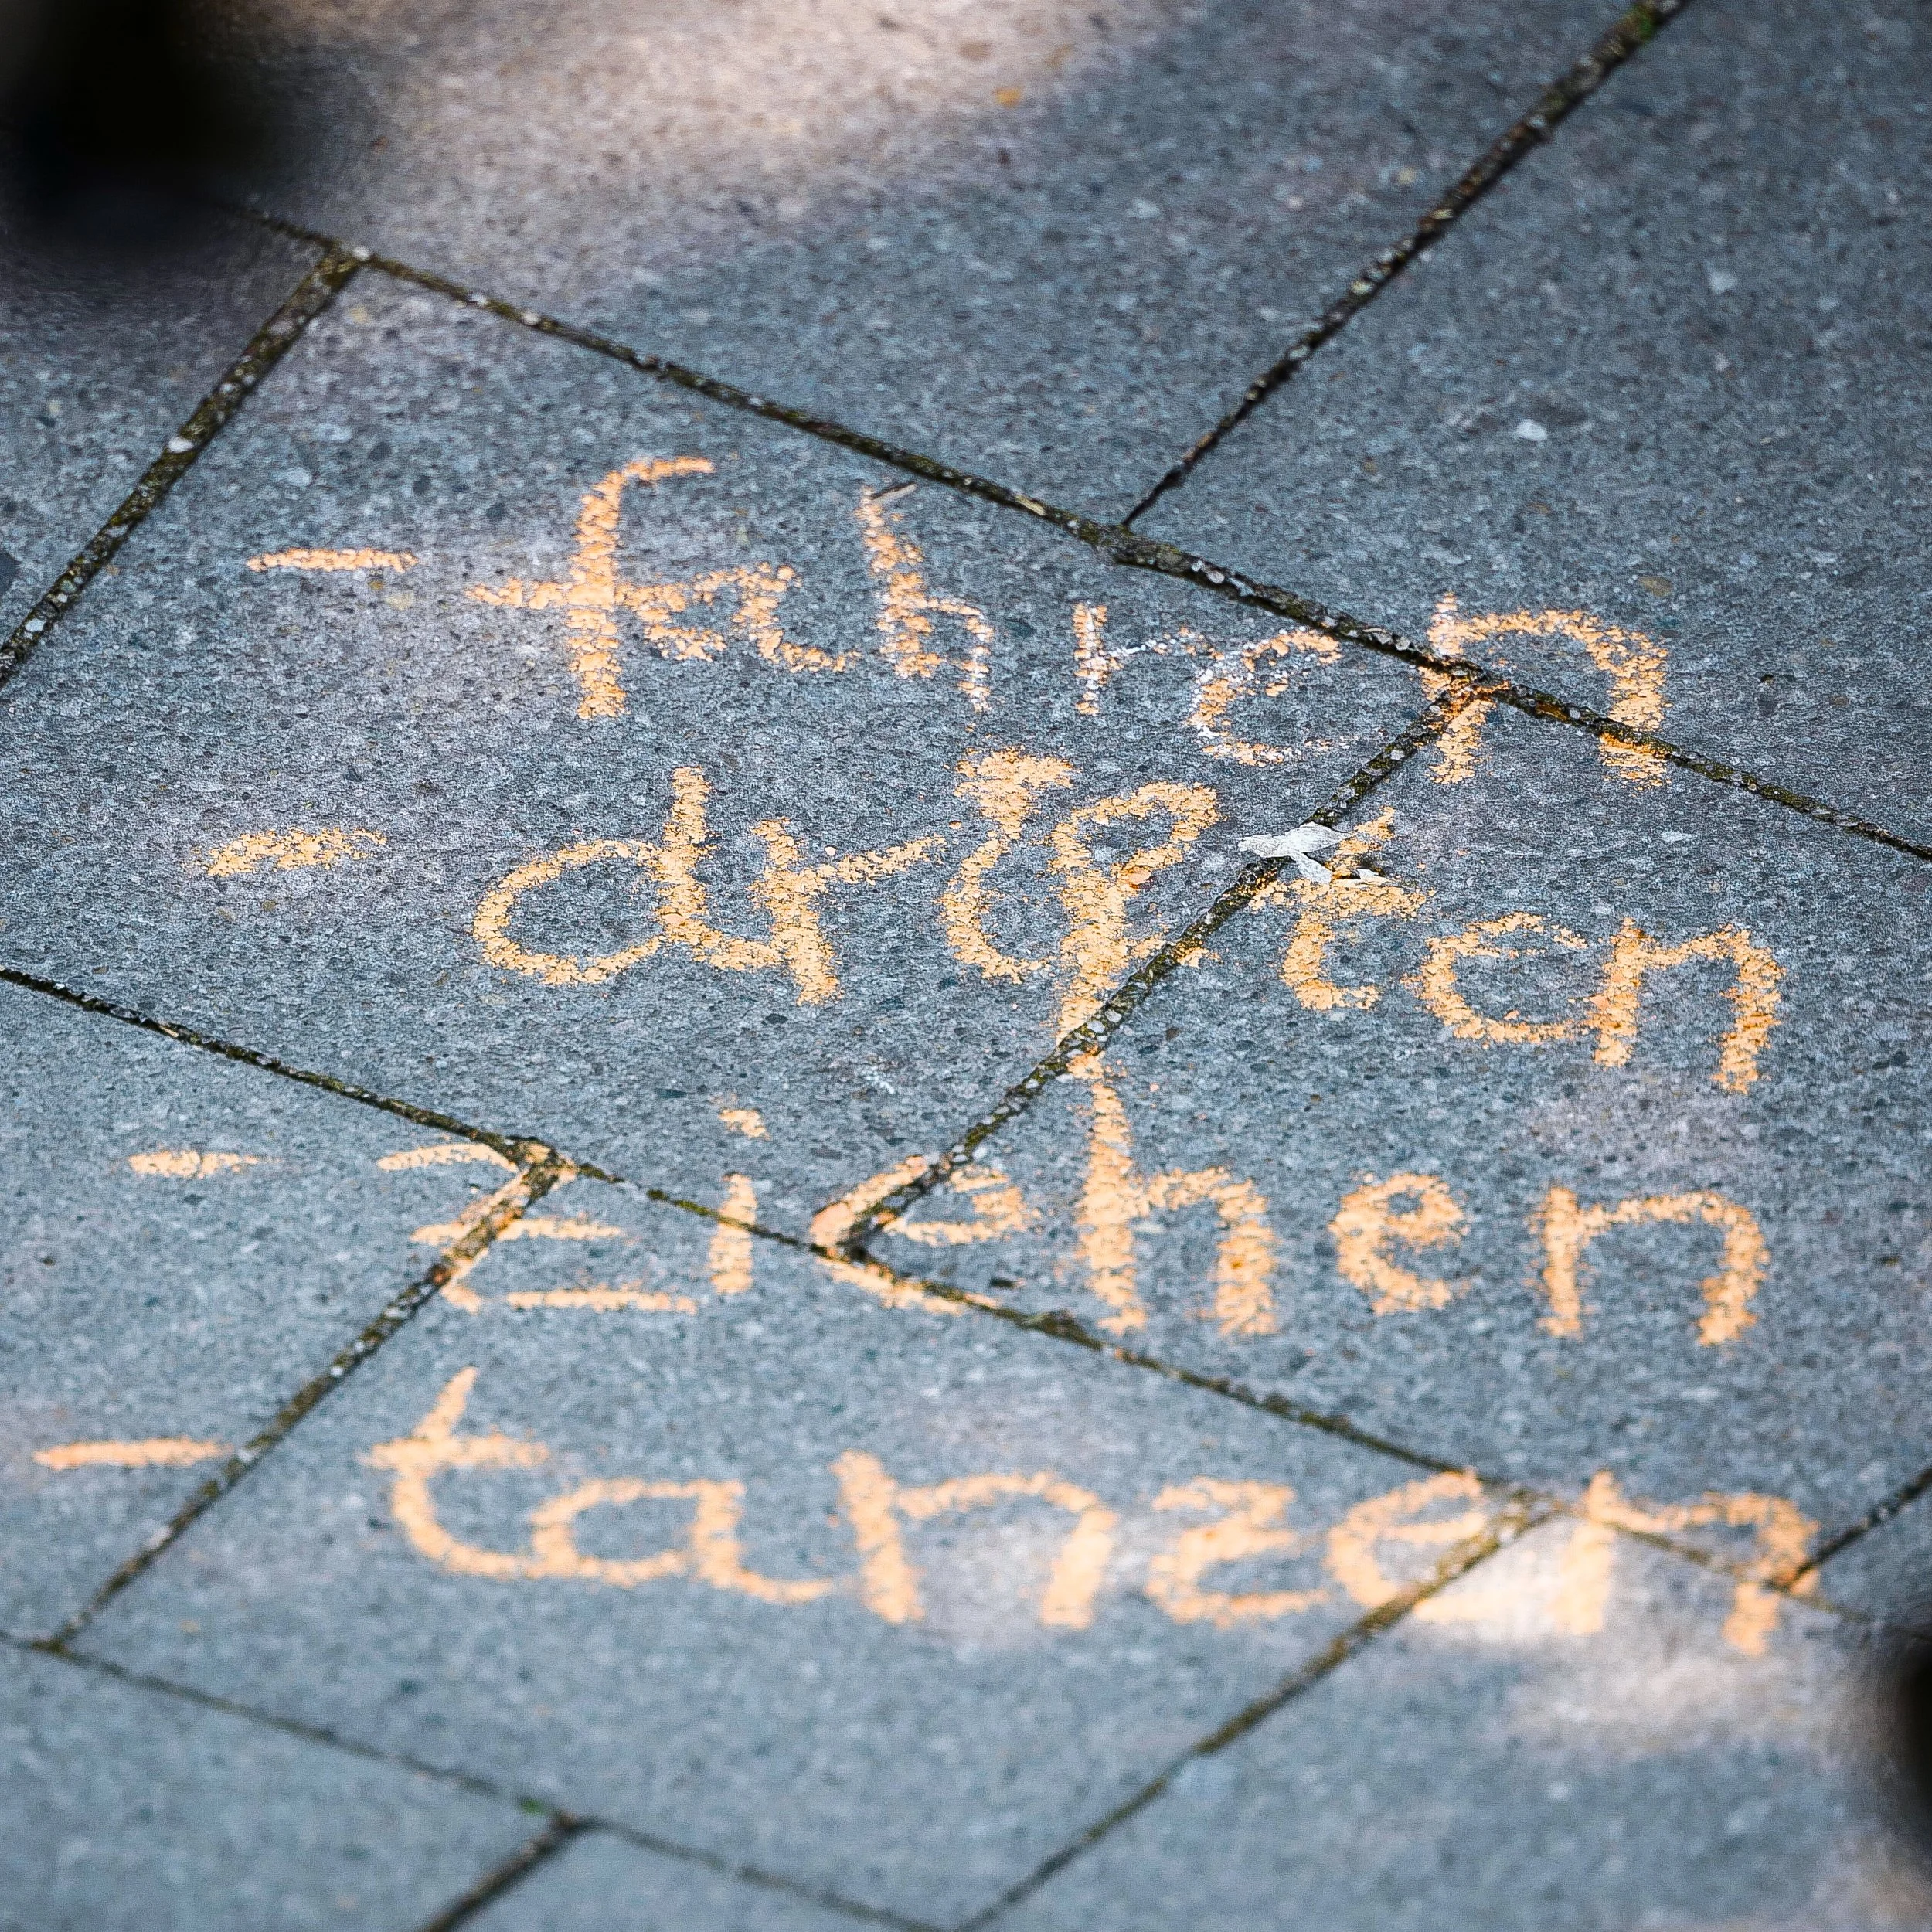 - fahren
- driften
- ziehen
- tanzen